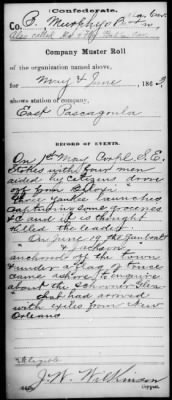 Confederate.
Co. C, Murphy's Battn,
Also called
Company Muster Roll
of the organization named above,
for May & June, 1862,
shows station of company,
East Pascagoula
RECORD OF EVENTS.
On 1st May Corpl. S.E.
Stokes with four men
aided by citizens drove
off from Biloxi
Yankee launches
capturing some groceries
&c and it is thought
killed the leader.
On June 19 the Gunboat
Jackson
anchored off the town
& under a flag of truce
came ashore to inquire
about the schooner
that had arrived
with exiles from New
Orleans
J. W. Wilkinson
Copyist.